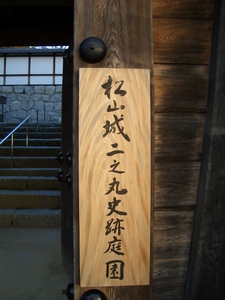 松山城二之丸史跡庭園